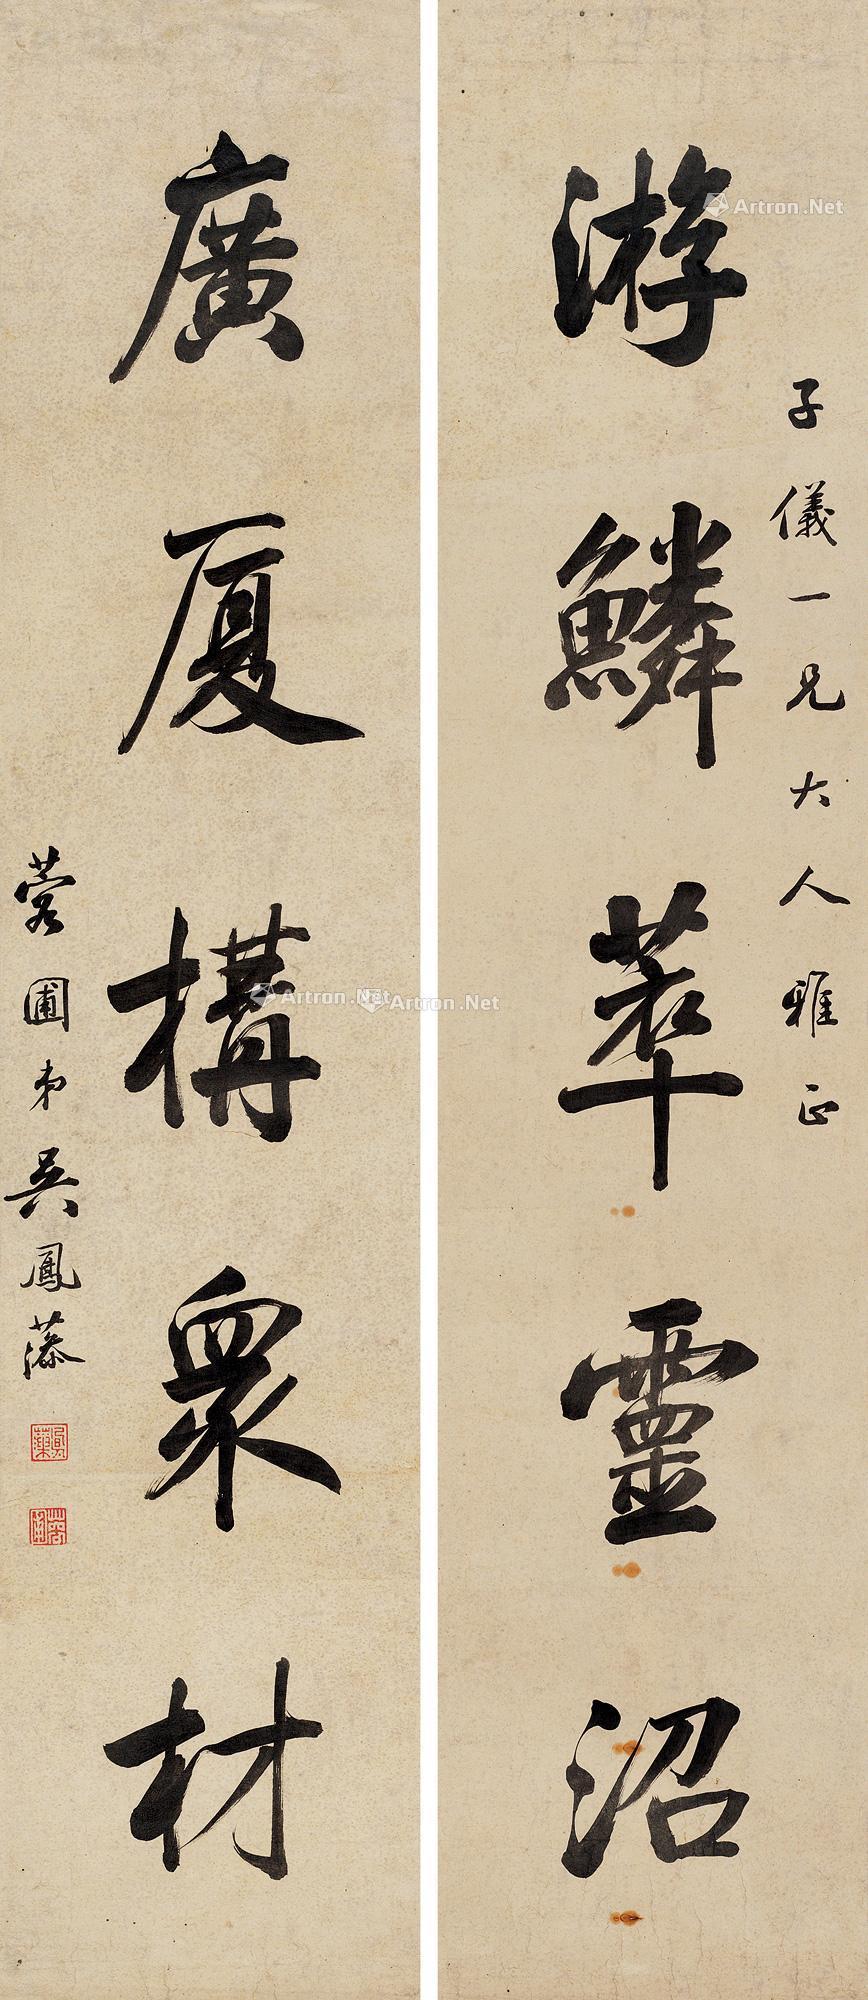 子儀一兄大人雅正
游鱗萃靈沼
廣厦構眾材
蓉圃弟吳鳳藻
Artron.Net
Artron.Net
Artron.Net